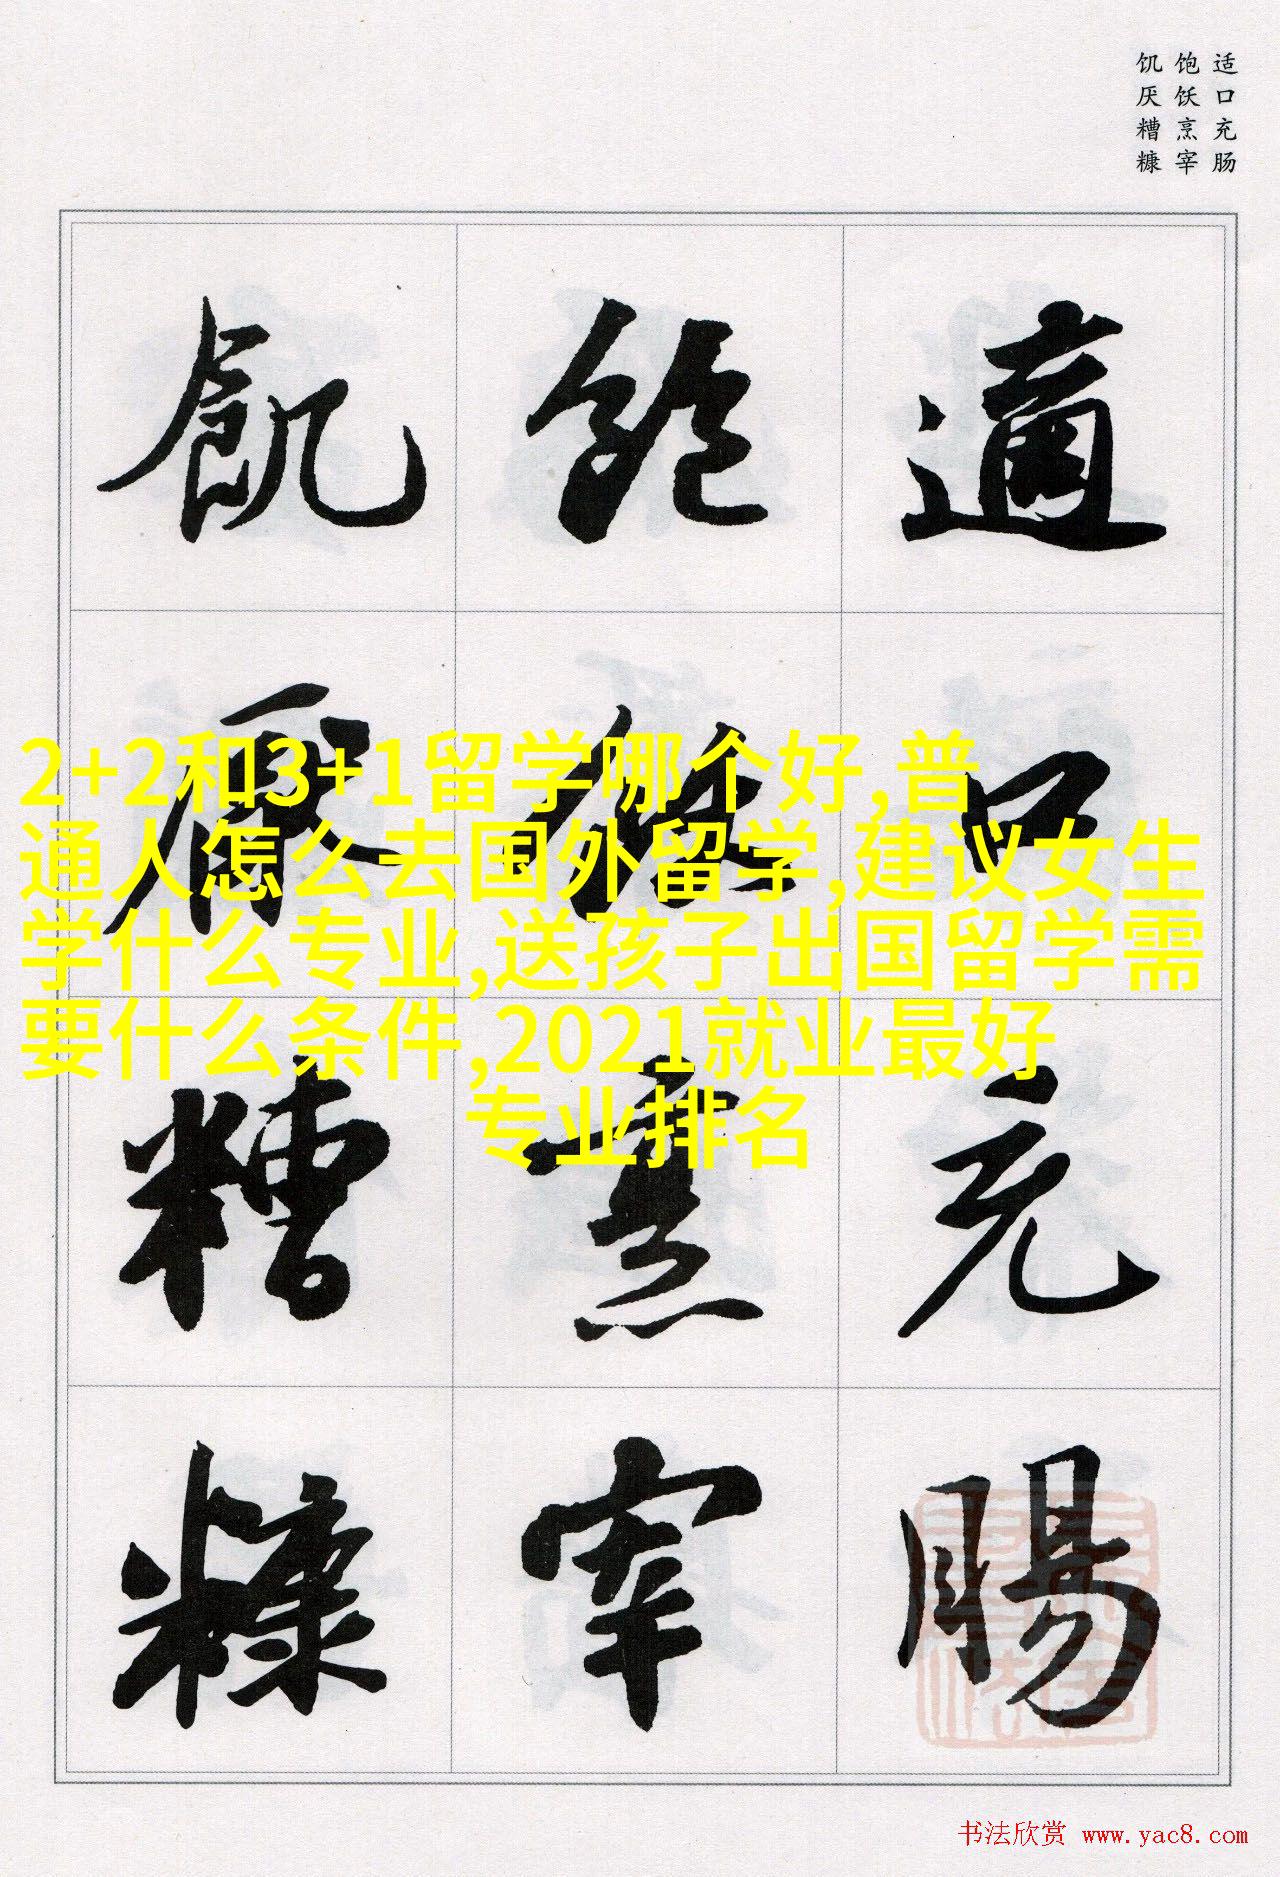 适口充肠
饱饫烹宰
饥厌糟糠
適口充腸
飽飫烹宰
飢厭糟糠
2+2和3+1留学哪个好,普
通人怎么去国外留学,建议女生
学什么专业,送孩子出国留学需
要什么条件,2021就业最好
专业排名
书法欣赏 www.yac8.com